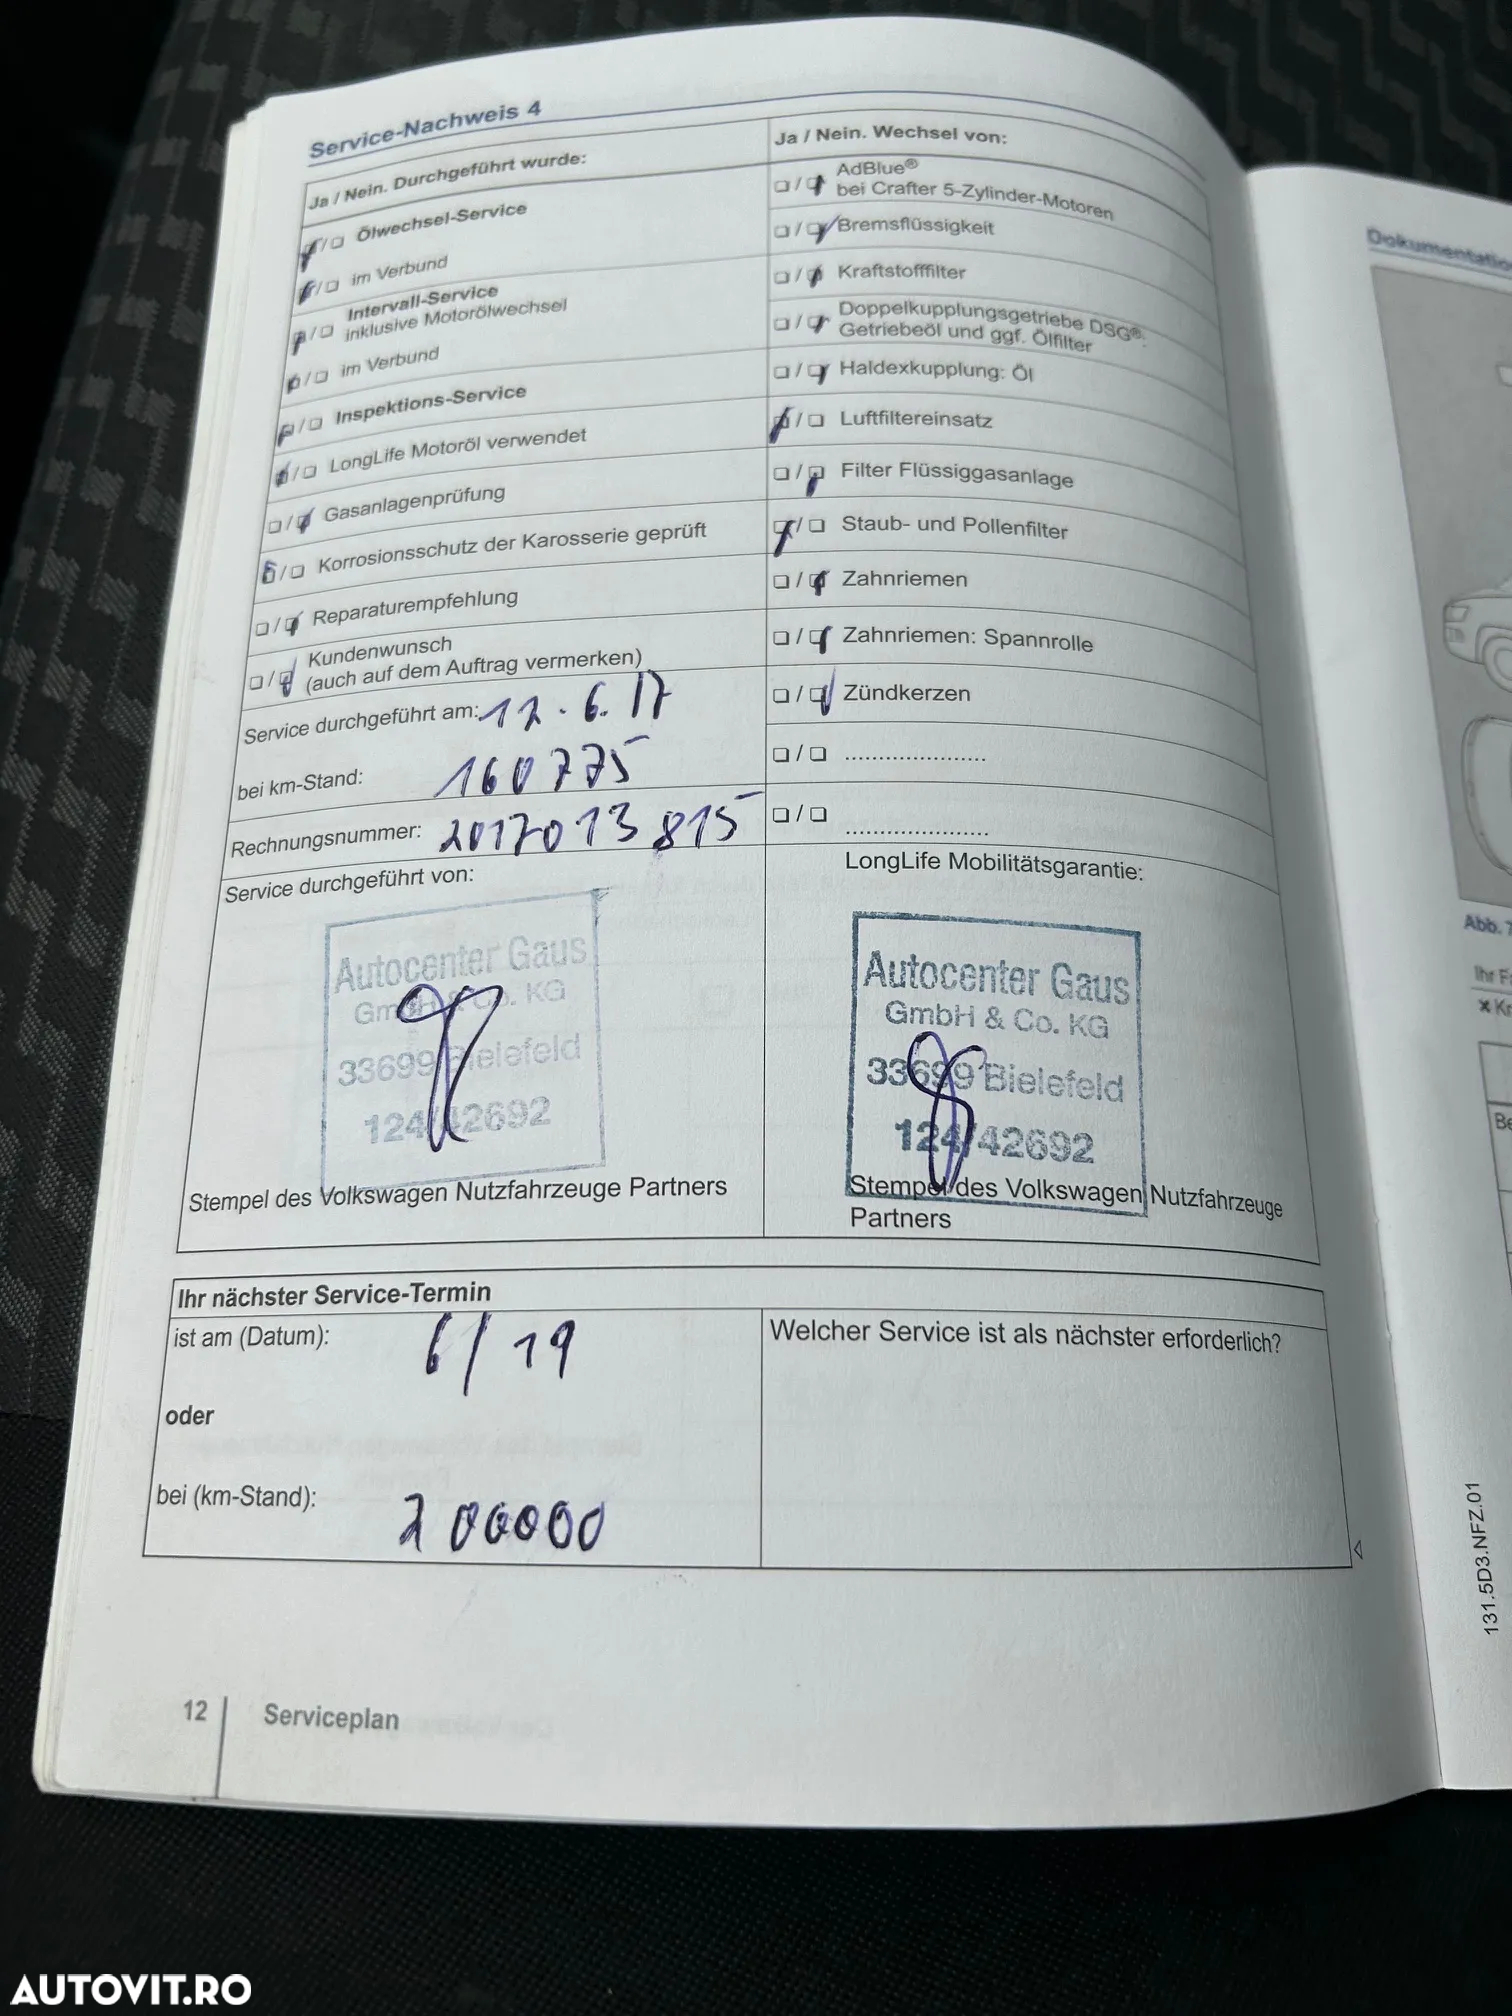 Service-Nachweis 4
Ja / Nein. Durchgeführt wurde:
Ölwechsel-Service
im Verbund
Intervall-Service
inklusive Motorölwechsel
im Verbund
Inspektions-Service
LongLife Motoröl verwendet
Gasanlagenprüfung
Korrosionsschutz der Karosserie geprüft
Reparaturempfehlung
Kundenwunsch
(auch auf dem Auftrag vermerken)
Service durchgeführt am: 12.6.17
bei km-Stand: 160775
Rechnungsnummer: 2017013815
Service durchgeführt von:
Autocenter Gaus
GmbH & Co. KG
33699 Bielefeld
124/42692
Stempel des Volkswagen Nutzfahrzeuge Partners
Ja / Nein. Wechsel von:
AdBlue®
bei Crafter 5-Zylinder-Motoren
Bremsflüssigkeit
Kraftstofffilter
Doppelkupplungsgetriebe DSG®:
Getriebeöl und ggf. Ölfilter
Haldexkupplung: Öl
Luftfiltereinsatz
Filter Flüssiggasanlage
Staub- und Pollenfilter
Zahnriemen
Zahnriemen: Spannrolle
Zündkerzen
LongLife Mobilitätsgarantie:
Autocenter Gaus
GmbH & Co. KG
33699 Bielefeld
124/42692
Stempel des Volkswagen Nutzfahrzeuge
Partners
Ihr nächster Service-Termin
ist am (Datum): 6/19
oder
bei (km-Stand): 200000
Welcher Service ist als nächster erforderlich?
12 Serviceplan
Abb. 7
131.5D3.NFZ.01
AUTOVIT.RO